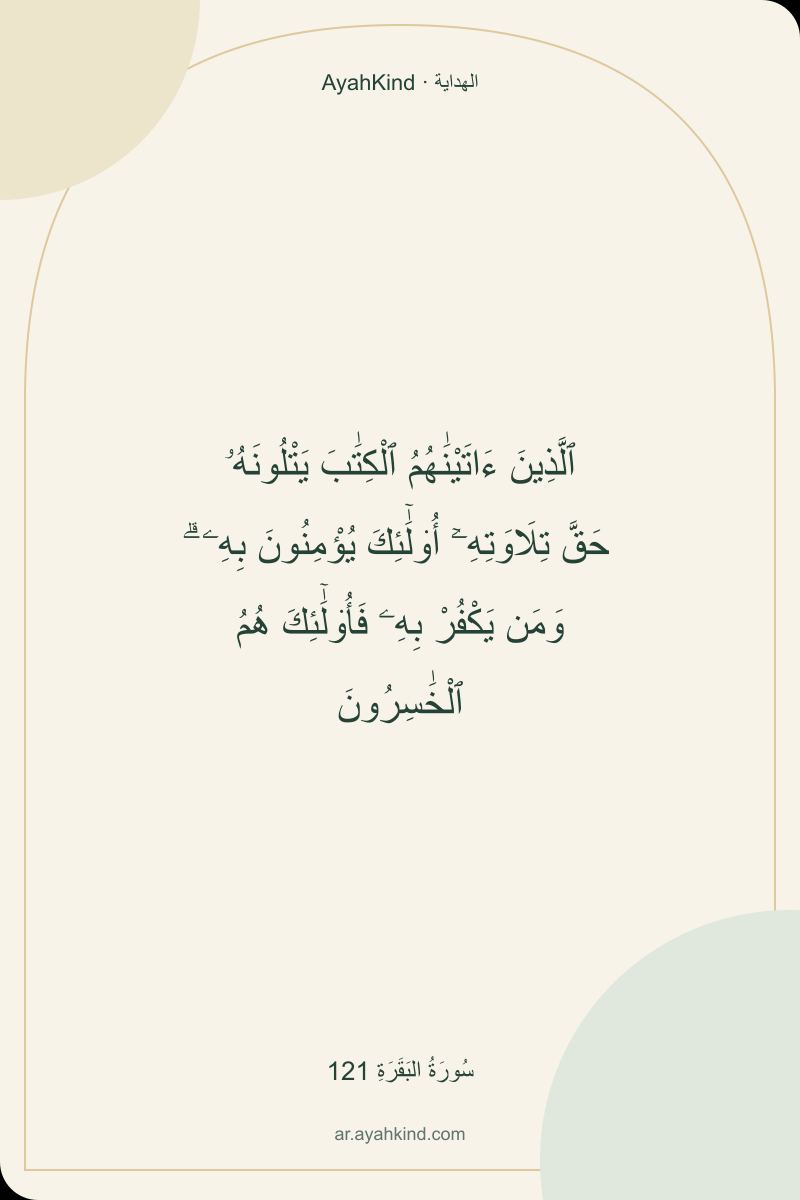 AyahKind · الهداية
ٱلَّذِينَ ءَاتَيْنَٰهُمُ ٱلْكِتَٰبَ يَتْلُونَهُۥ
حَقَّ تِلَاوَتِهِۦٓ أُو۟لَٰٓئِكَ يُؤْمِنُونَ بِهِۦ ۗ
وَمَن يَكْفُرْ بِهِۦ فَأُو۟لَٰٓئِكَ هُمُ
ٱلْخَٰسِرُونَ
سُورَةُ البَقَرَةِ 121
ar.ayahkind.com